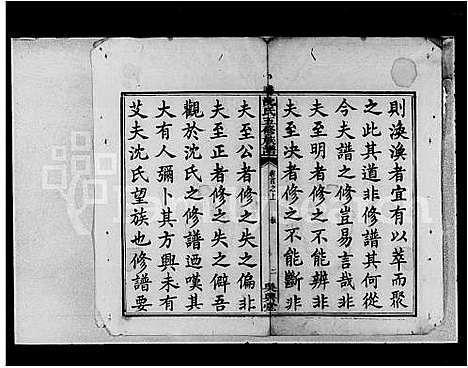 則渙渙者宜有以萃而聚
之此其道非修譜其何從
今夫譜之修豈易言哉非
夫至明者修之不能辨非
夫至决者修之不能斷非
沈氏五修族譜
卷首之上
二
吳興堂
夫至公者修之失之偏非
夫至正者修之失之僻吾
觀於沈氏之修譜適嘆其
大有人彌卜其方興未有
艾夫沈氏望族也修譜要